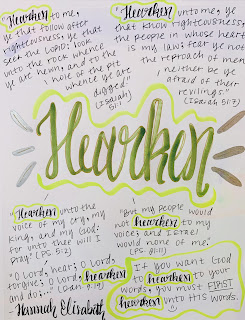 "Hearken to me,
ye that follow after
righteousness, ye that
seek the LORD: look
unto the rock whence
ye are hewn, and to the
hole of the pit
whence ye are
digged."
(Isaiah
51:1)
"Hearken unto me, ye
that know righteousness,
the people in whose heart
is my law; fear ye not
the reproach of men,
neither be ye
afraid of their
revilings."
(Isaiah 51:7)
Hearken
"Hearken unto the
voice of my cry, my
King, and my God:
for unto thee will I
pray." (PS. 5:2)
"O Lord, hear; O Lord,
forgive; O Lord, hearken
and do;..." (Dan. 9:19)
Hannah Elisabeth
"But my people would
not hearken to my
voice; and Israel
would none of me."
(PS. 81:11)
If you want God
to hearken to your
words, you must FIRST
hearken unto HIS words.